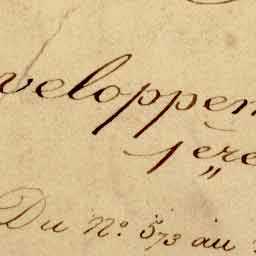 veloppem
1ère
Du N° 573 au